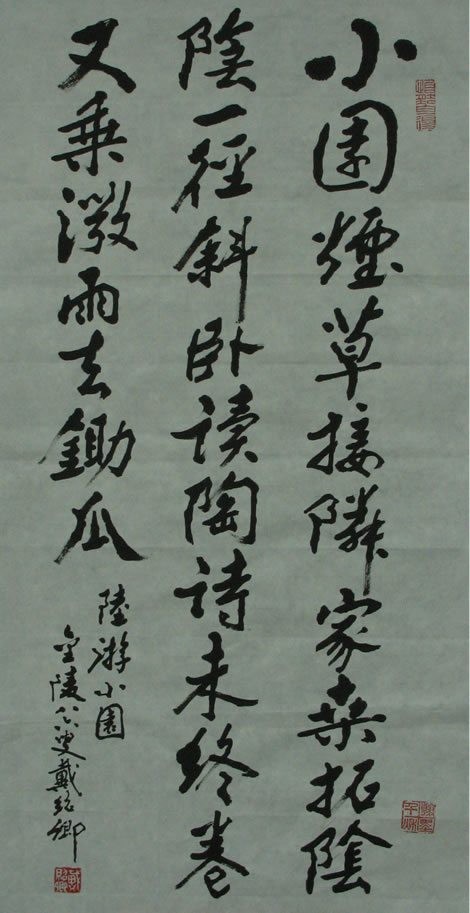 小園煙草接隣家桑拓陰
陰一徑斜卧读陶詩未終卷
又乘溦雨去鋤瓜
陸游小園
金陵公叟戴 卿